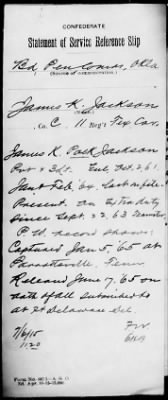 CONFEDERATE
Statement of Service Reference Slip
Bd. Pen Coms. Okla
(Source of communication.)
James K. Jackson
(Name.)
Co. C 11 Reg't Tex Cav.
James K. Polk Jackson
Pvt & Sgt. Enl. Oct. 2, 61
Jan & Feb '64 Last on file
Present. On Extra duty
since Sept. 22, 63 Teamster
P. W. record shows:
Captured Jan 5, '65 at
Tenn
Released June 7, '65 on
oath of all submitted to
at Ft Delaware Del.
7/6/15
1120
Form No. 807